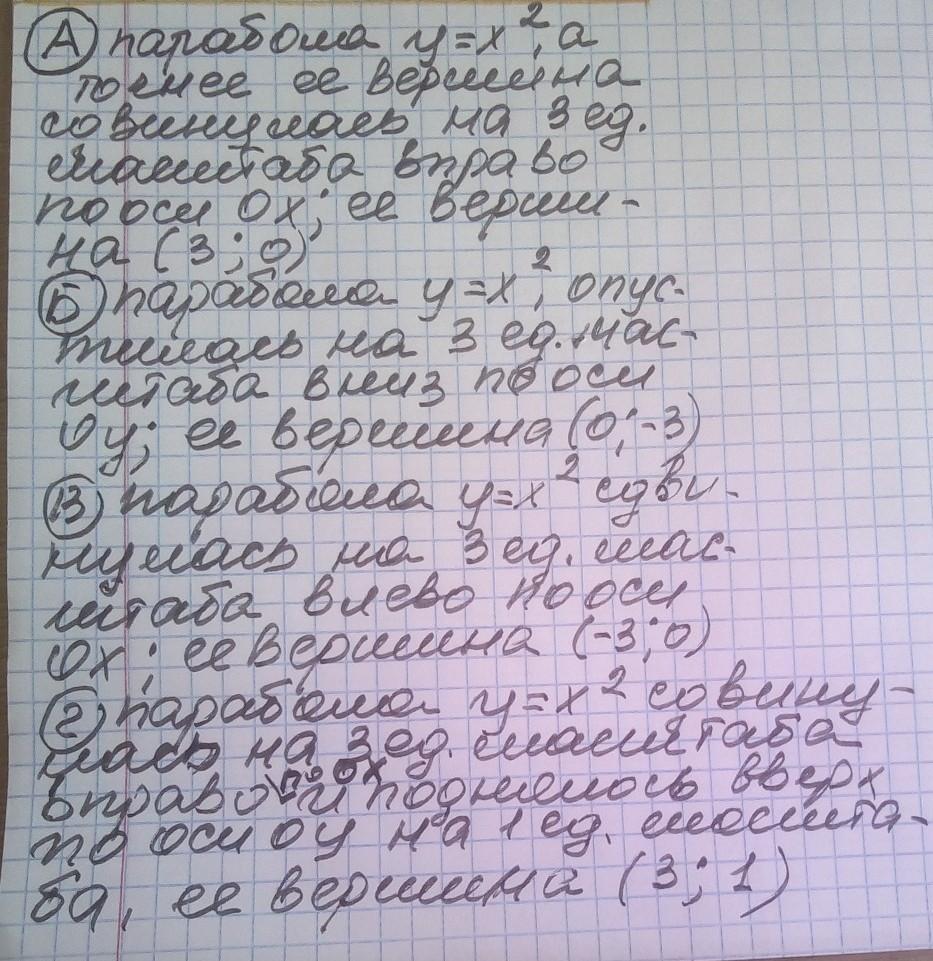 А парабола y=x², а
точнее ее вершина
совинулась на 3 ед.
масштаба вправо
по оси Ох; ее верши-
на (3; 0)
Б парабола y=x², опус-
тилась на 3 ед. мас-
штаба вниз по оси
Оу; ее вершина (0; -3)
В парабола y=x² сдви-
нулась на 3 ед. мас-
штаба влево по оси
Ох; ее вершина (-3; 0)
г парабола y=x² совину-
лась на 3 ед. масштаба
вправо по ох и поднялось вверх
по оси оу на 1 ед. масшта-
ба, ее вершина (3; 1)